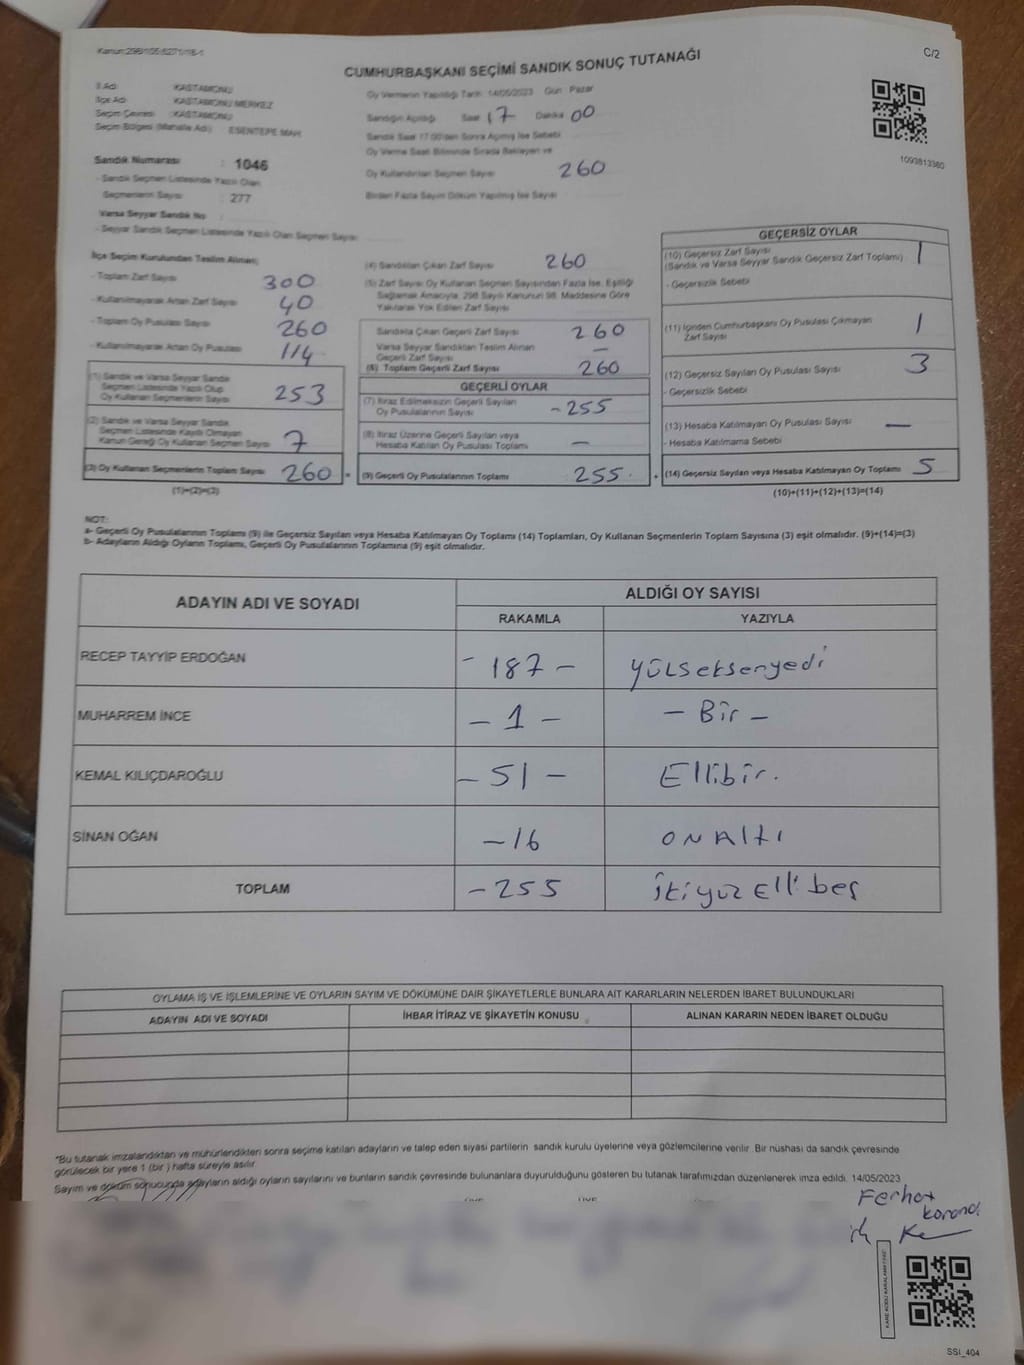 C/2
CUMHURBAŞKANI SEÇİMİ SANDIK SONUÇ TUTANAĞI
İl Adı : KASTAMONU
İlçe Adı : KASTAMONU MERKEZ
Seçim Çevresi : KASTAMONU
Seçim Bölgesi (Mahalle Adı) : ESENTEPE MAH.
Oy Vermenin Yapıldığı Tarih 14/05/2023 Gün Pazar
Sandığın Açıldığı Saat 17 Dakika 00
Sandık Saat 17.00'den Sonra Açılmış İse Sebebi
Oy Verme Saati Bitiminde Sırada Bekleyen ve
Oy Kullandırılan Seçmen Sayısı 260
Birden Fazla Sayım Döküm Yapılmış İse Sayısı
1093813380
Sandık Numarası : 1046
- Sandık Seçmen Listesinde Yazılı Olan
Seçmenlerin Sayısı : 277
Varsa Seyyar Sandık No :
- Seyyar Sandık Seçmen Listesinde Yazılı Olan Seçmen Sayısı
İlçe Seçim Kurulundan Teslim Alınan;
- Toplam Zarf Sayısı 300
- Kullanılmayarak Artan Zarf Sayısı 40
- Toplam Oy Pusulası Sayısı 260
- Kullanılmayarak Artan Oy Pusulası 114
(1) Sandık ve Varsa Seyyar Sandık
Seçmen Listesinde Yazılı Olup
Oy Kullanan Seçmenlerin Sayısı 253
(2) Sandık ve Varsa Seyyar Sandık
Seçmen Listesinde Kayıtlı Olmayan
Kanun Gereği Oy Kullanan Seçmen Sayısı 7
(3) Oy Kullanan Seçmenlerin Toplam Sayısı 260 =
(1)+(2)=(3)
(4) Sandıktan Çıkan Zarf Sayısı 260
(5) Zarf Sayısı Oy Kullanan Seçmen Sayısından Fazla İse, Eşitliği
Sağlamak Amacıyla, 298 Sayılı Kanunun 98. Maddesine Göre
Yakılarak Yok Edilen Zarf Sayısı
Sandıkta Çıkan Geçerli Zarf Sayısı 260
Varsa Seyyar Sandıktan Teslim Alınan
Geçerli Zarf Sayısı —
(6) Toplam Geçerli Zarf Sayısı 260
GEÇERLİ OYLAR
(7) İtiraz Edilmeksizin Geçerli Sayılan
Oy Pusulalarının Sayısı -255
(8) İtiraz Üzerine Geçerli Sayılan veya
Hesaba Katılan Oy Pusulası Toplamı —
(9) Geçerli Oy Pusulalarının Toplamı 255 +
GEÇERSİZ OYLAR
(10) Geçersiz Zarf Sayısı
(Sandık ve Varsa Seyyar Sandık Geçersiz Zarf Toplamı) 1
- Geçersizlik Sebebi
(11) İçinden Cumhurbaşkanı Oy Pusulası Çıkmayan
Zarf Sayısı 1
(12) Geçersiz Sayılan Oy Pusulası Sayısı 3
- Geçersizlik Sebebi
(13) Hesaba Katılmayan Oy Pusulası Sayısı —
- Hesaba Katılmama Sebebi
(14) Geçersiz Sayılan veya Hesaba Katılmayan Oy Toplamı 5
(10)+(11)+(12)+(13)=(14)
NOT:
a- Geçerli Oy Pusulalarının Toplamı (9) ile Geçersiz Sayılan veya Hesaba Katılmayan Oy Toplamı (14) Toplamları, Oy Kullanan Seçmenlerin Toplam Sayısına (3) eşit olmalıdır. (9)+(14)=(3)
b- Adayların Aldığı Oyların Toplamı, Geçerli Oy Pusulalarının Toplamına (9) eşit olmalıdır.
ADAYIN ADI VE SOYADI
ALDIĞI OY SAYISI
RAKAMLA YAZIYLA
RECEP TAYYİP ERDOĞAN - 187 - yülseksenyedi
MUHARREM İNCE - 1 - - Bir -
KEMAL KILIÇDAROĞLU - 51 - Ellibir.
SİNAN OĞAN - 16 onAltı
TOPLAM - 255 ikiyüz Elli beş
OYLAMA İŞ VE İŞLEMLERİNE VE OYLARIN SAYIM VE DÖKÜMÜNE DAİR ŞİKAYETLERLE BUNLARA AİT KARARLARIN NELERDEN İBARET BULUNDUKLARI
ADAYIN ADI VE SOYADI İHBAR İTİRAZ VE ŞİKAYETİN KONUSU ALINAN KARARIN NEDEN İBARET OLDUĞU
"Bu tutanak imzalandıktan ve mühürlendikten sonra seçime katılan adayların ve talep eden siyasi partilerin sandık kurulu üyelerine veya gözlemcilerine verilir. Bir nüshası da sandık çevresinde
görülecek bir yere 1 (bir ) hafta süreyle asılır.
Sayım ve döküm sonucunda adayların aldığı oyların sayılarını ve bunların sandık çevresinde bulunanlara duyurulduğunu gösteren bu tutanak tarafımızdan düzenlenerek imza edildi. 14/05/2023
Ferhat
SSI_404